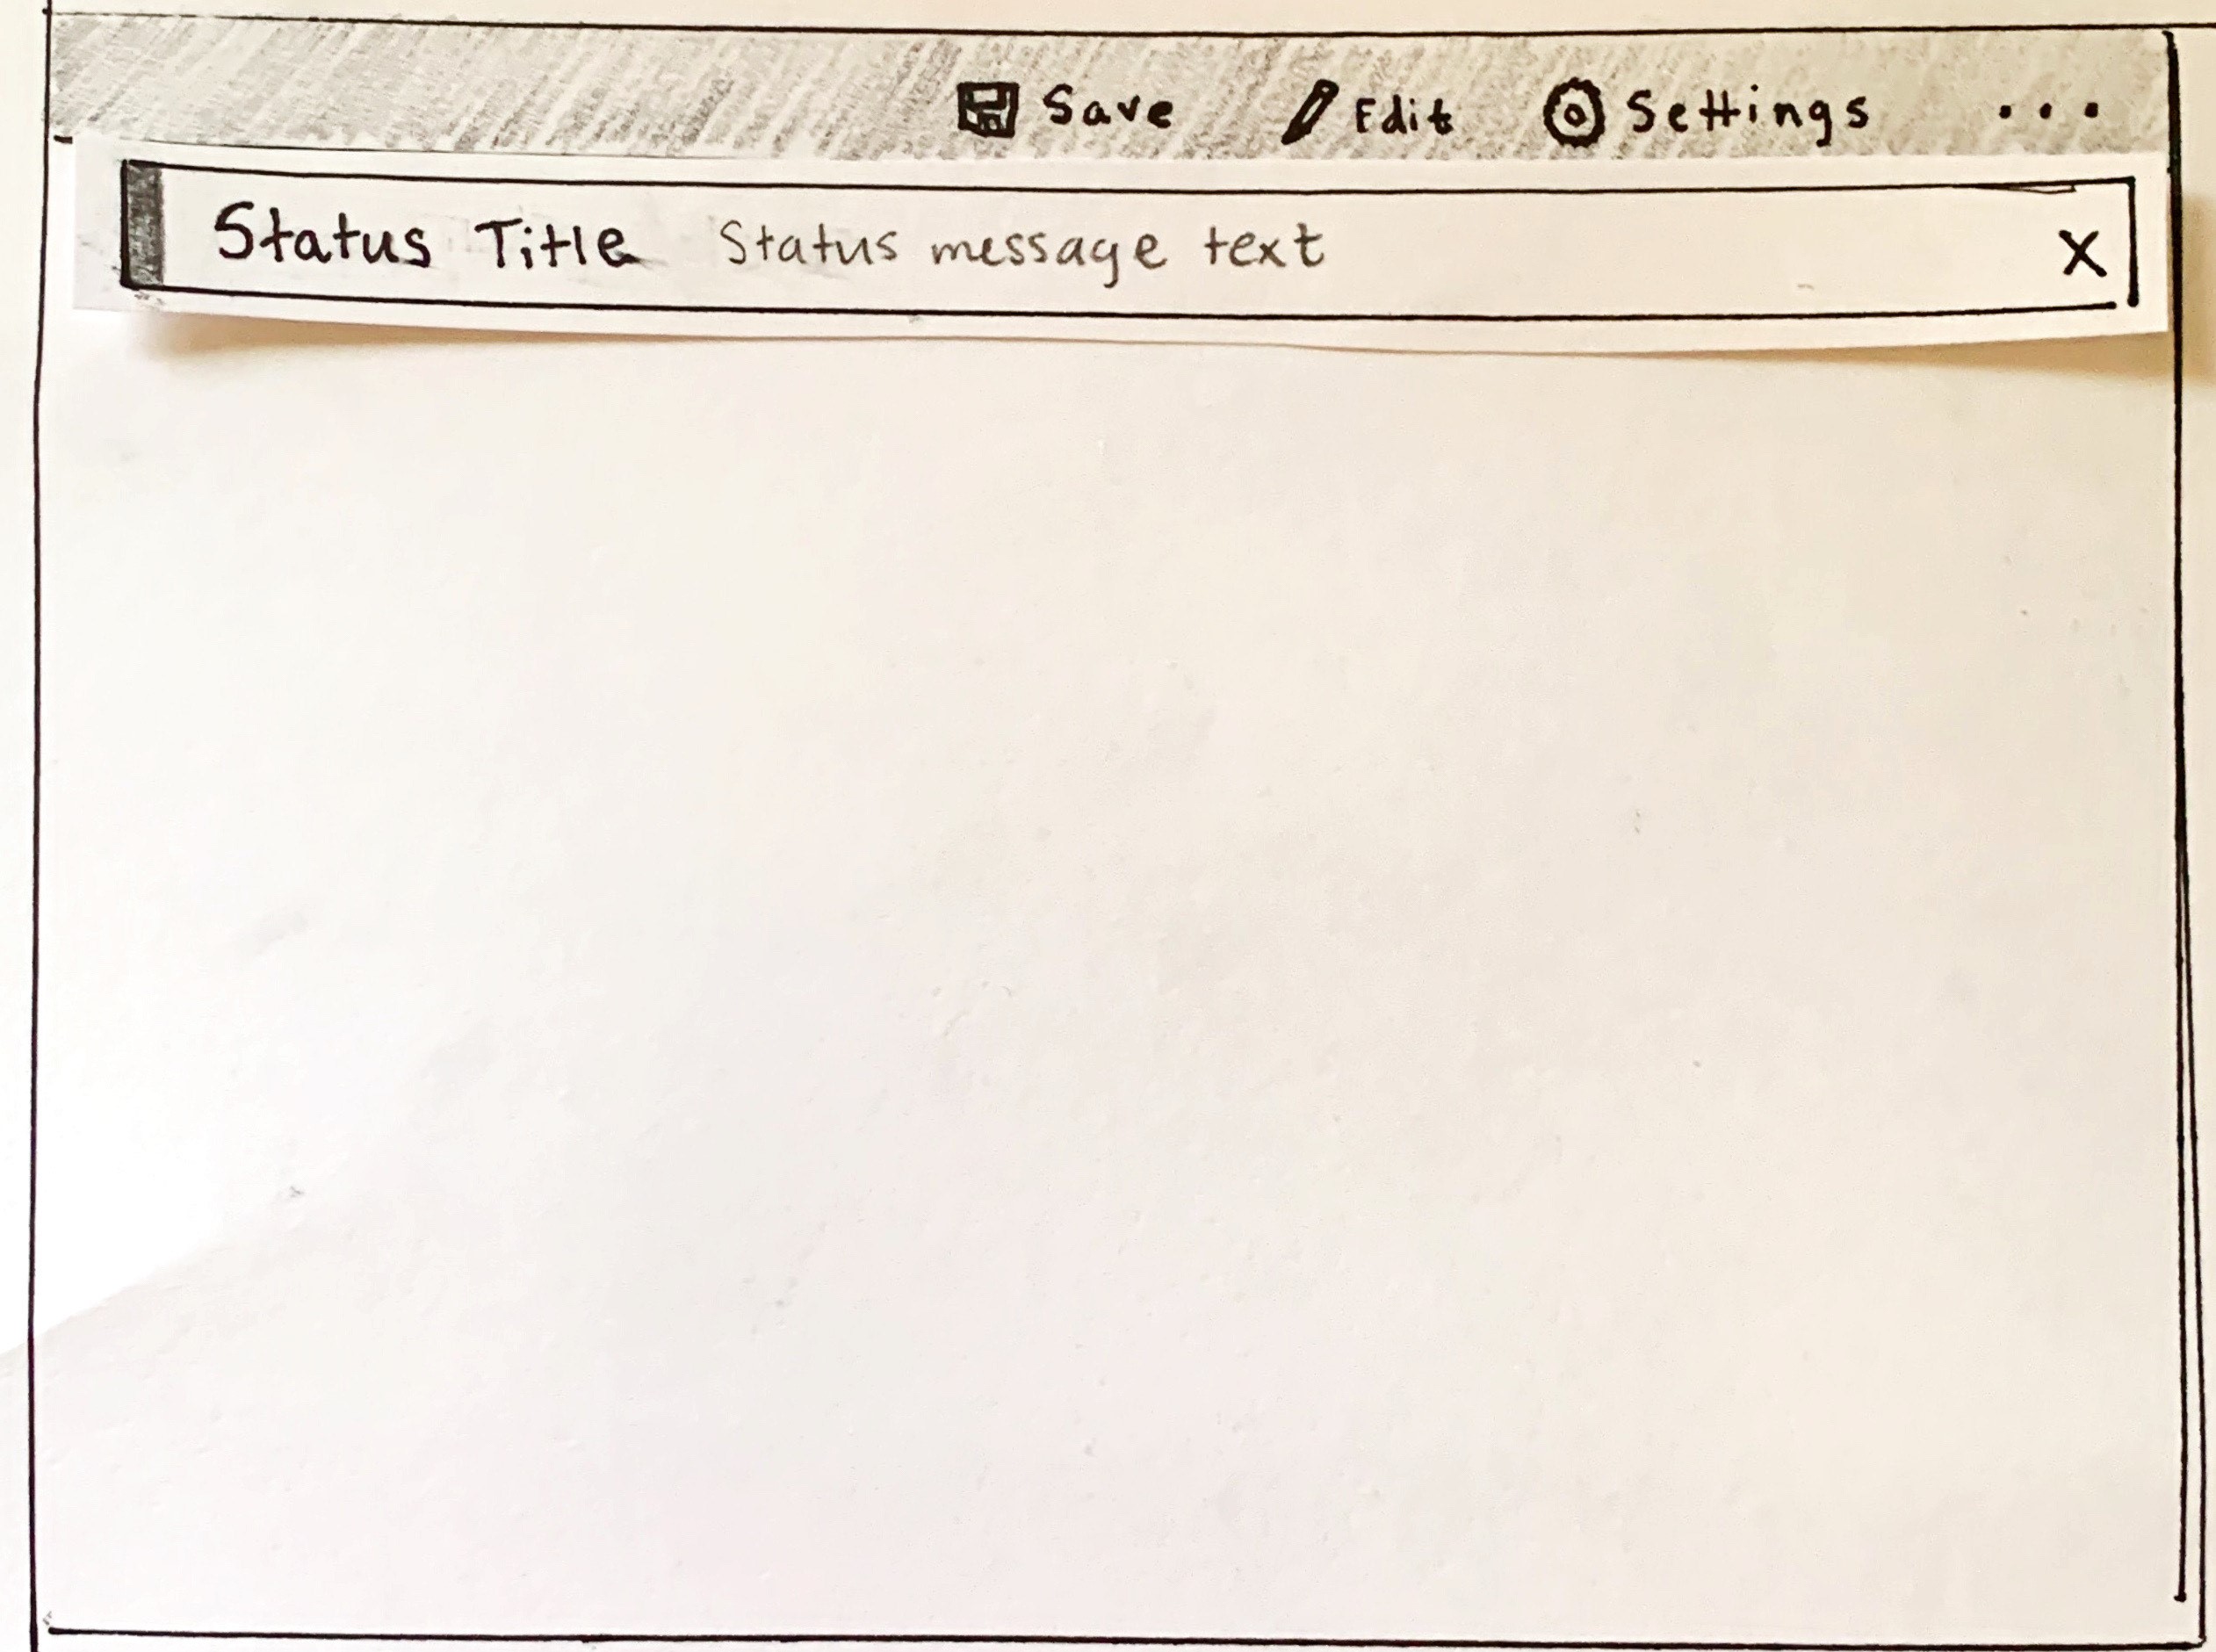 Save Edit Settings ...
Status Title Status message text X